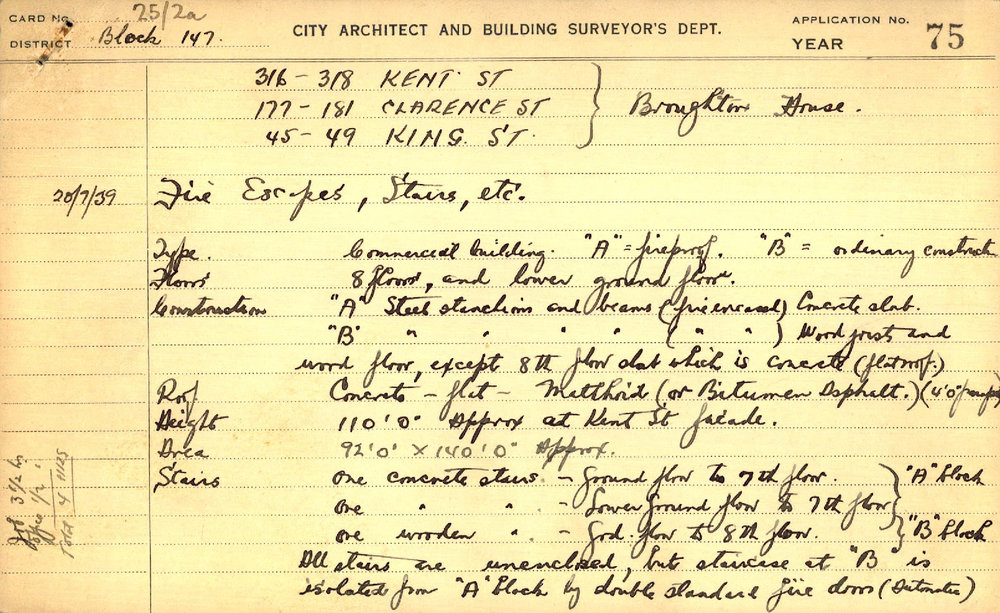 CARD No. 25/2a
DISTRICT Block 147.
CITY ARCHITECT AND BUILDING SURVEYOR'S DEPT.
APPLICATION No.
YEAR
75
316 - 318 KENT ST
177 - 181 CLARENCE ST
45 - 49 KING. ST.
Broughton House.
20/7/39 Fire Escapes, Stairs, etc.
Type. Commercial building. "A" = fireproof. "B" = ordinary construct
Floors 8 floors, and lower ground floor.
Construction "A" Steel stanchions and beams (fire encased) Concrete slab.
"B" " " " " ( " " ) Wood joists and
wood floor, except 8th floor slab which is concrete (flat roof.)
Roof Concrete - flat - Malthoid (or Bitumen Asphalt.) (4'0" parapet)
Height 110'0" Approx at Kent St facade.
Area 92'0" X 140'0" Approx.
Stairs one concrete stairs - Ground floor to 7th floor. } "A" block
one " " - Lower Ground floor to 7th floor
one wooden " - Grd. floor to 8th floor. } "B" block
All stairs are unenclosed, but staircase at "B" is
isolated from "A" block by double standard fire doors (Automatic)
Job 3 1/2 hrs
Office 1/2 "
Total 4 HRS